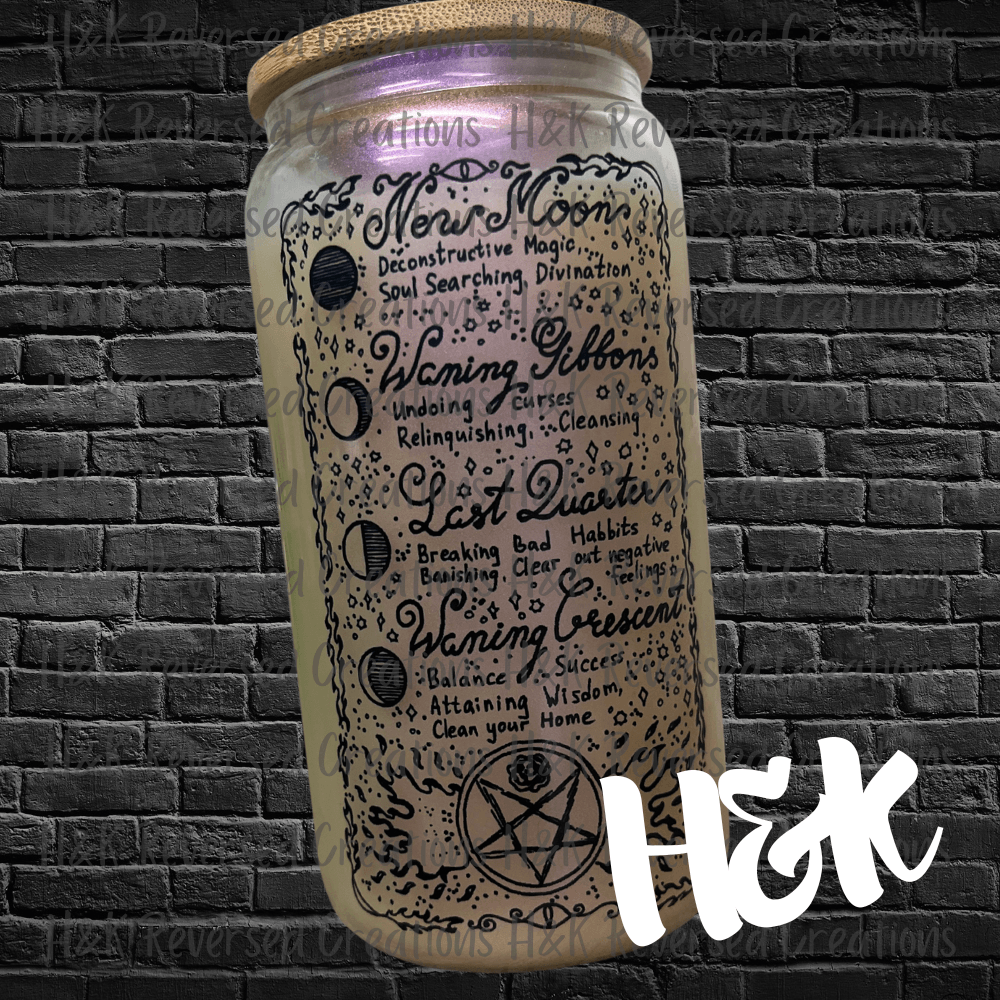 H&K Reversed Creations H&K Reversed Creations
H&K Reversed Creations H&K Reversed Creations
New Moon
Deconstructive Magic
Soul Searching, Divination
Waning Gibbons
Undoing Curses
Relinquishing. Cleansing
Last Quarter
Breaking Bad Habbits
Banishing Clear out negative
feelings
Waning Crescent
Balance Success
Attaining Wisdom,
Clean your Home
H&K
H&K Reversed Creations H&K Reversed Creations